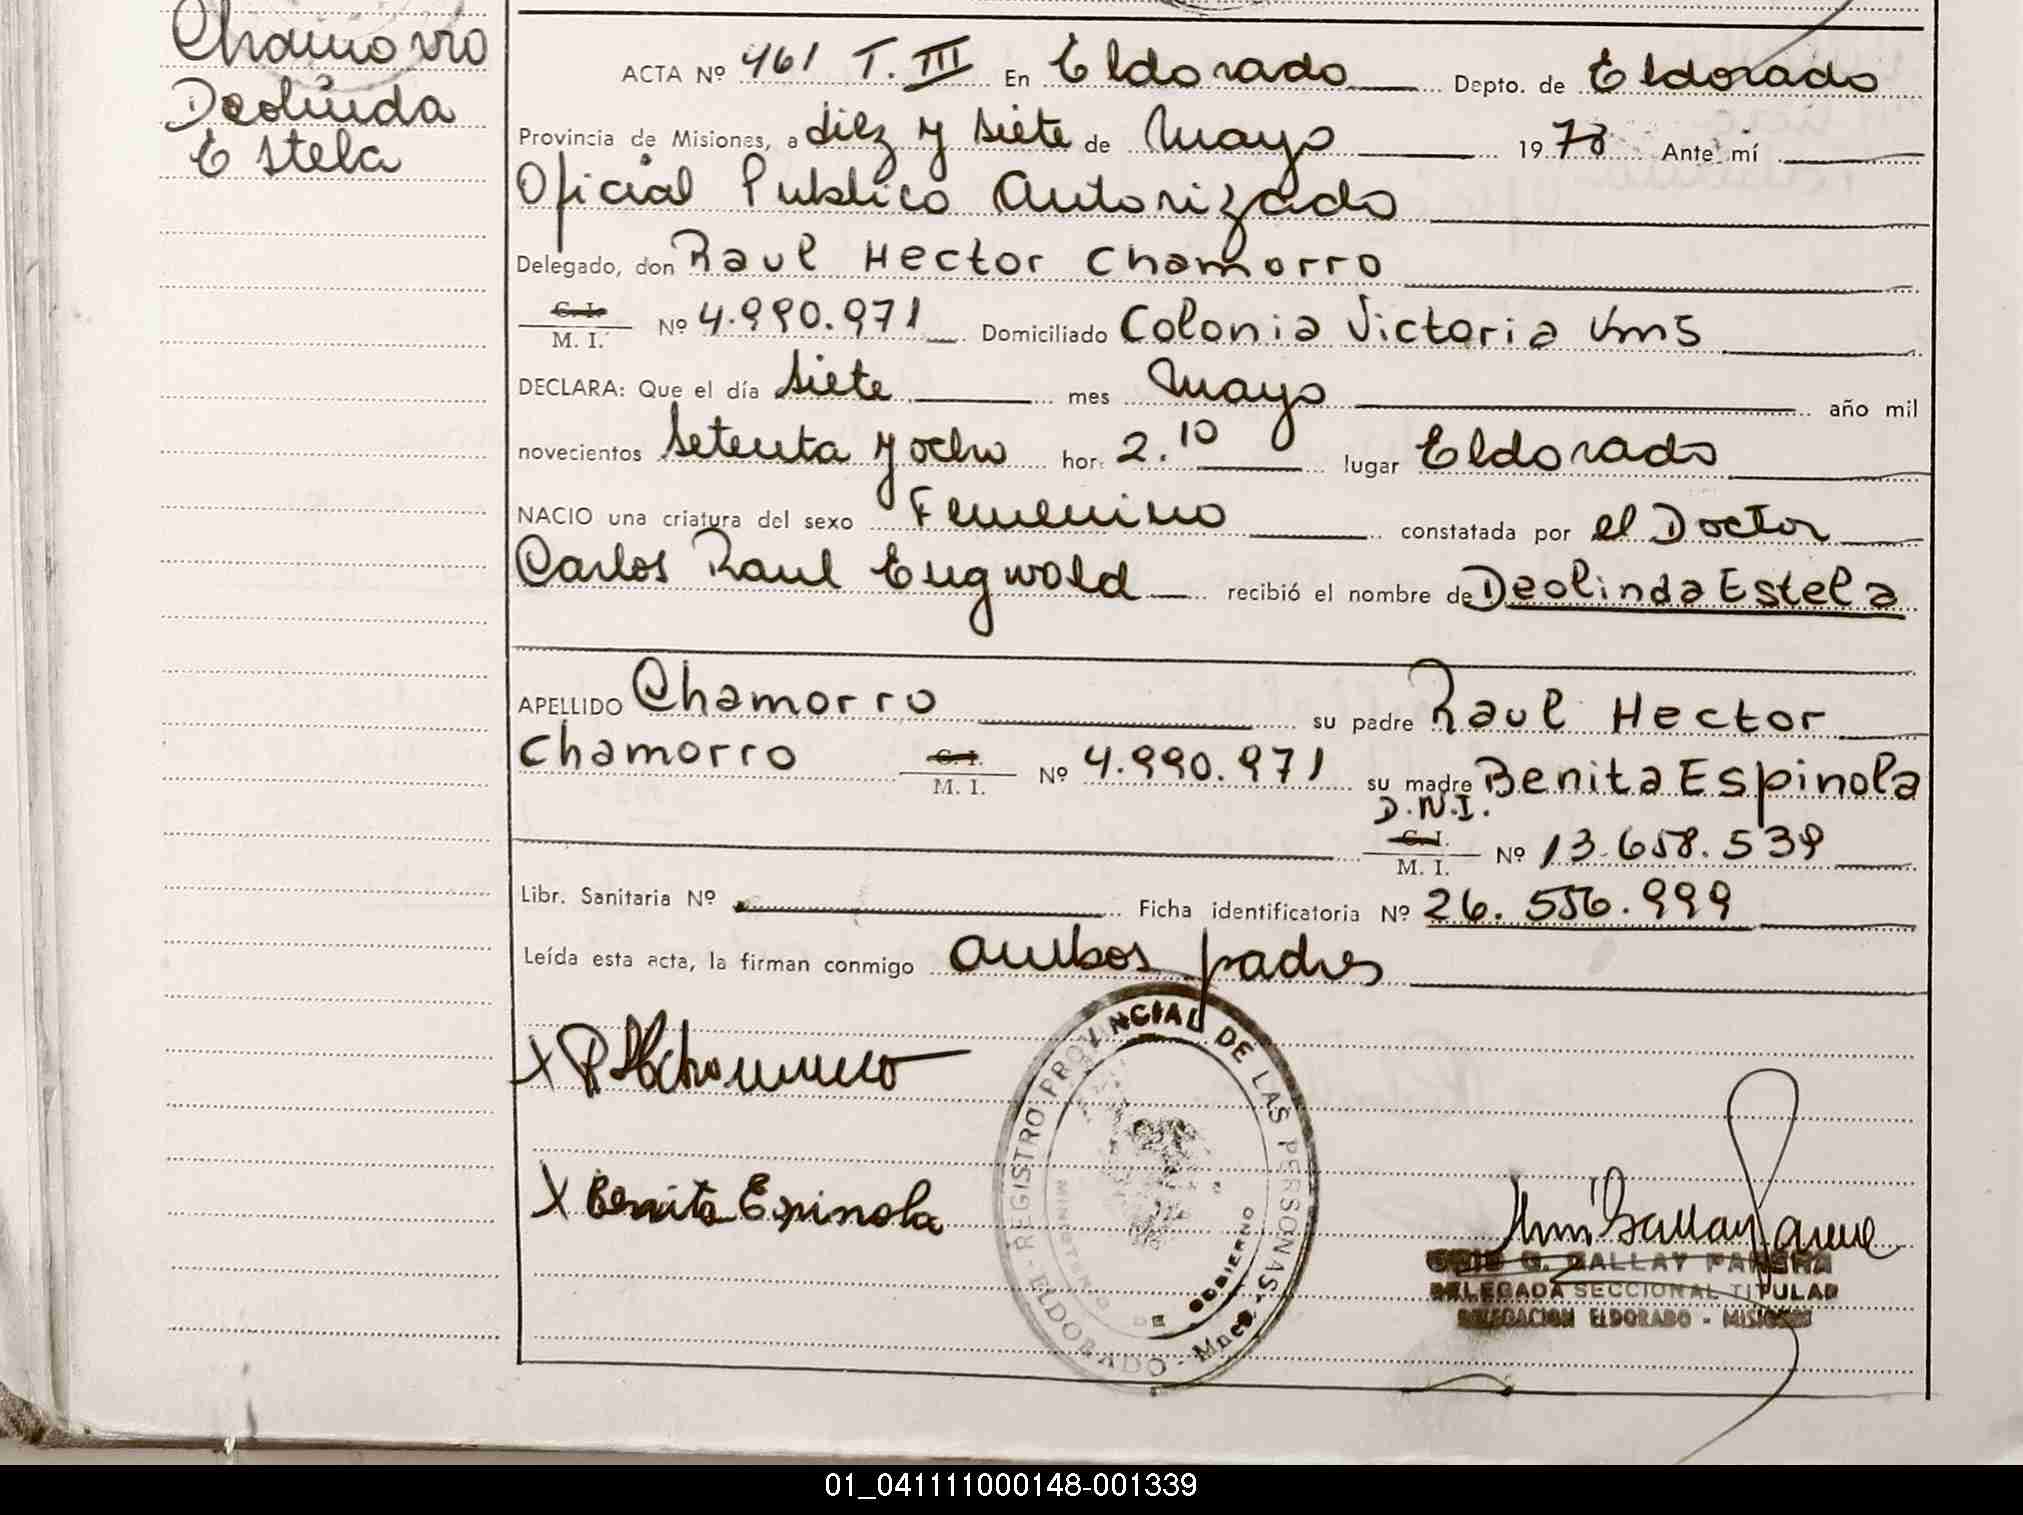 Chamorro
Deolinda
Estela
ACTA Nº 461 T. III En Eldorado Depto. de Eldorado
Provincia de Misiones, a diez y siete de Mayo 1978 Ante mí
Oficial Publico Autorizado
Delegado, don Raul Hector Chamorro
C. I.
M. I. Nº 4.990.971 Domiciliado Colonia Victoria Km5
DECLARA: Que el día siete mes Mayo año mil
novecientos setenta y ocho hor. 2.10 lugar Eldorado
NACIO una criatura del sexo Femenino constatada por el Doctor
Carlos Raul Engwald recibió el nombre de Deolinda Estela
APELLIDO Chamorro su padre Raul Hector
Chamorro C. I. M. I. Nº 4.990.971 su madre Benita Espinola
D.N.I.
C. I.
M. I. Nº 13.658.539
Libr. Sanitaria Nº Ficha identificatoria Nº 26.556.999
Leída esta acta, la firman conmigo ambos padres
X R H Chamorro
X Benita Espinola
REGISTRO PROVINCIAL DE LAS PERSONAS
MINISTERIO DE GOBIERNO
ELDORADO - Mnes.
G. GALLAY
DELEGADA SECCIONAL TITULAR
DELEGACION ELDORADO - MISIONES
01_041111000148-001339